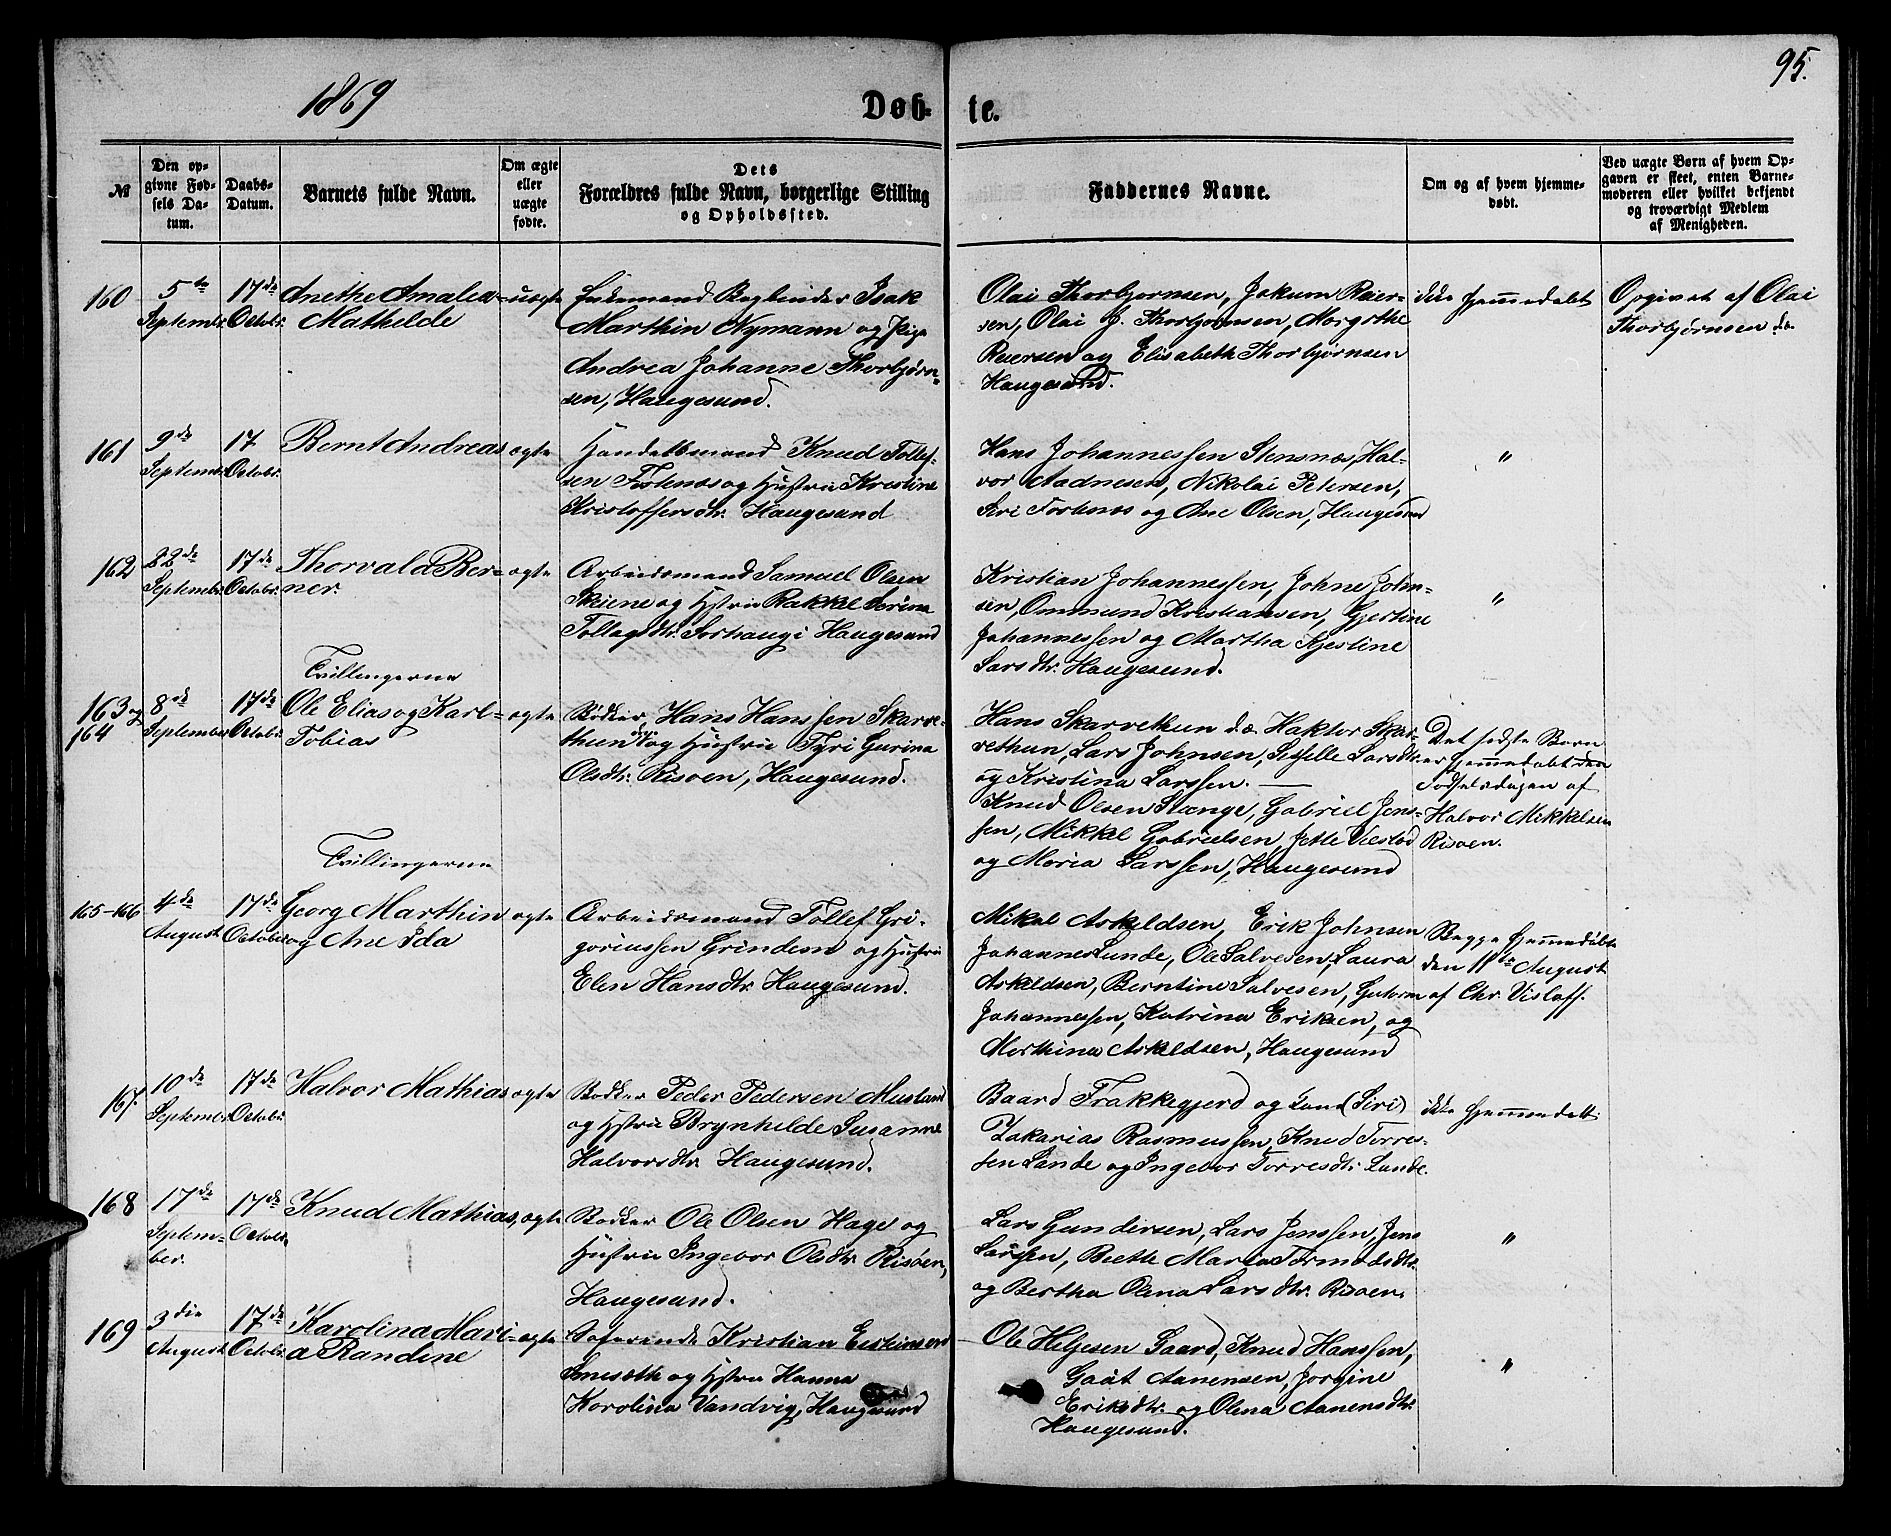 1869
Døb-
te.
95.
№
Den op-
givne Fød-
sels Da-
tum.
Daabs-
Datum.
Barnets fulde Navn.
Om ægte
eller
uægte
fødte.
Dets
Forældres fulde Navn, borgerlige Stilling
og Opholdssted.
Faddernes Navne.
Om og af hvem hjemme-
døbt.
Ved uægte Børn af hvem Op-
gaven er skeet, enten Barne-
moderen eller hvilket bekjendt
og troværdigt Medlem
af Menigheden.
160
5te
Septembr.
17de
Octobr.
Anethe Amalea
Mathilde
uægte
Enkemand Bogbinder Isak
Marthin Nymann og Pige
Andrea Johanne Thorbjørn-
sen, Haugesund.
Olai Thorbjørnsen, Jakum Reier-
sen, Olai J. Thorbjørnsen, Margrthe
Reiersen og Elisabeth Thorbjørnsen
Haugesund.
ikke hjemmedøbt
Opgivet af Olai
Thorbjørnsen
161
9de
Septembr.
17
Octobr.
Bernt Andreas
ægte
Handelsmand Knud Tollef-
sen Fostenæs og Hustru Kristine
Kristoffersdtr. Haugesund
Hans Johannessen Stensnæs, Hal-
vor Aadnesen, Nikolai Petersen,
Siri og Ane Olsen, Haugesund
"
162
22de
Septembr.
17de
Octobr.
Thorvald Ber-
ner.
ægte
Arbeidsmand Samuel Olsen
Skeiene og Hstru Rakkel Serina
Tollagsdtr. Sørhaug i Haugesund
Kristian Johannessen, Johne John-
sen, Ommund Kristiansen, Gjertine
Johannessen og Martha Kjestine
Larsdtr. Haugesund.
"
Tvillingerne
163 og
164
8de
September
17de
Octobr.
Ole Elias og Karl
Tobias
ægte
Bødker, Hans Hanssen Skarve-
thun og Hustru Tyri Gurina
Olsdtr. Risøen, Haugesund.
Hans Skarvethun Haktor Skar-
vethun, Lars Johnsen, Larsdtr.
og Kristina Larssen. —
Knud Olsen Stange, Gabriel Jens-
sen, Mikkel Gabrielsen, Jette
og Maria Larssen, Haugesund
Det sidste Barn
er hjemmedøbt
Fødselsdagen af
Halvor Mikkelsen
Risøen.
Tvillingerne
165-166
4de
August
17de
Octobr.
Georg Marthin
og Ane Ida
ægte
Arbeidsmand Tollef Gri-
goriussen Grindem og Hustru
Elen Hansdtr. Haugesund.
Mikal Askildsen, Erik Johnsen
Johannes Lunde, Ole Salvesen, Laura
Askeldsen, Berntine Salvesen, Gutorm
Johannessen, Katrina Eriksen, og
Marthina Askeldsen, Haugesund
Begge hjemmedøbte
den 11te August
af Chr. Visløff.
167.
10de
September
17de
Octobr.
Halvor Mathias
ægte
Bødker Peder Pedersen Musland
og Hstru Brynhilde Susanne
Halvorsdtr. Haugesund.
Baard Frakkegjerd og (Siri)
Zakarias Rasmussen, Knud Torres-
sen Lande og Ingebor Torresdtr. Lande.
ikke hjemmedøbt
168
17de
Septem-
ber.
17de
Octobr.
Knud Mathias,
ægte
Bødker Ole Olsen Hage og
Hustru Ingebor Olsdtr. Risøen,
Haugesund.
Lars Gundersen, Lars Jenssen, Jens
Larssen, Beethe Maria Tormodsdtr.
og Bertha Olena Larsdtr. Risøen.
"
169
3die
August
17de
Octobr.
Karolina Mari-
a Randine
ægte
Søfarende Kristian
Smesæth og Hstru Hanna
Karolina Vandvig, Haugesund
Ole Helgesen Gaard, Knud Hanssen,
Aanensen, Jorgine
Eriksdtr. og Olena Aanensdtr.
Haugesund.
"